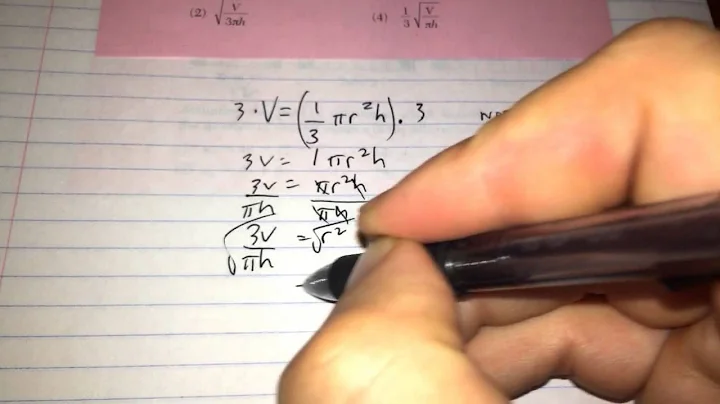 (2) √(V/3πh) (4) 1/3 √(V/πh)
3 · V = (1/3 πr²h) · 3
3V = 1πr²h
3V/πh = πr²h/πh
√(3V/πh) = √r²